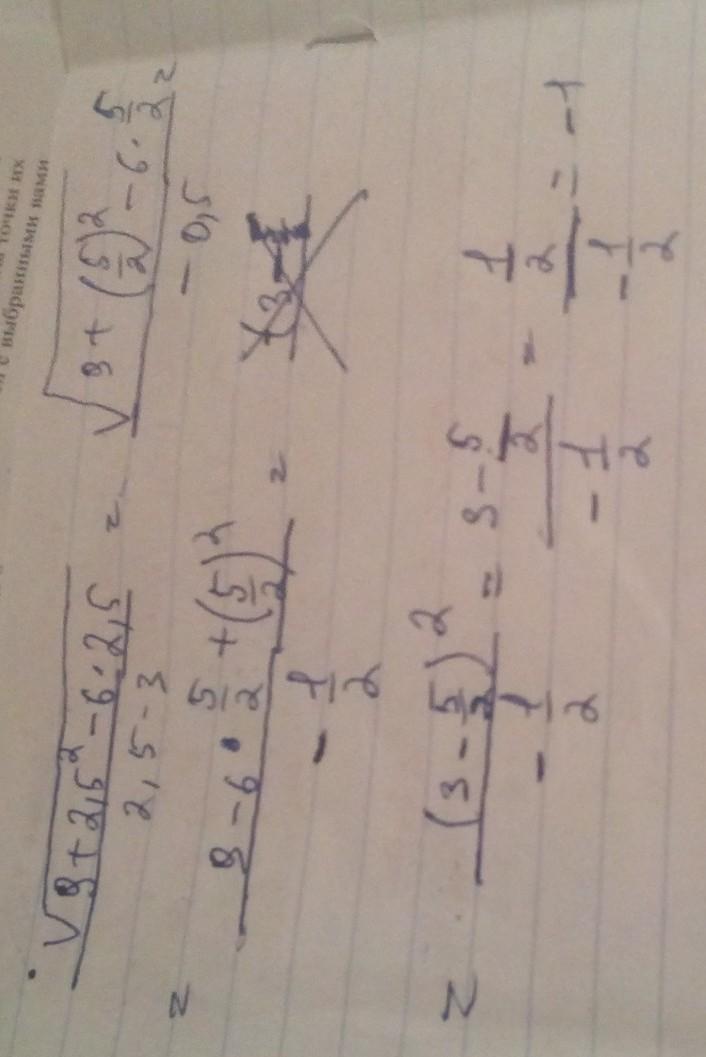 точки их
с выбранными вами
√(9+2,5²-6·2,5) / (2,5-3) = √(9+(5/2)²-6·5/2) / (-0,5) =
= (9-6·5/2+(5/2)²) / (-1/2) =
= (3-5/2)² / (-1/2) = (3-5/2) / (-1/2) = (1/2) / (-1/2) = -1